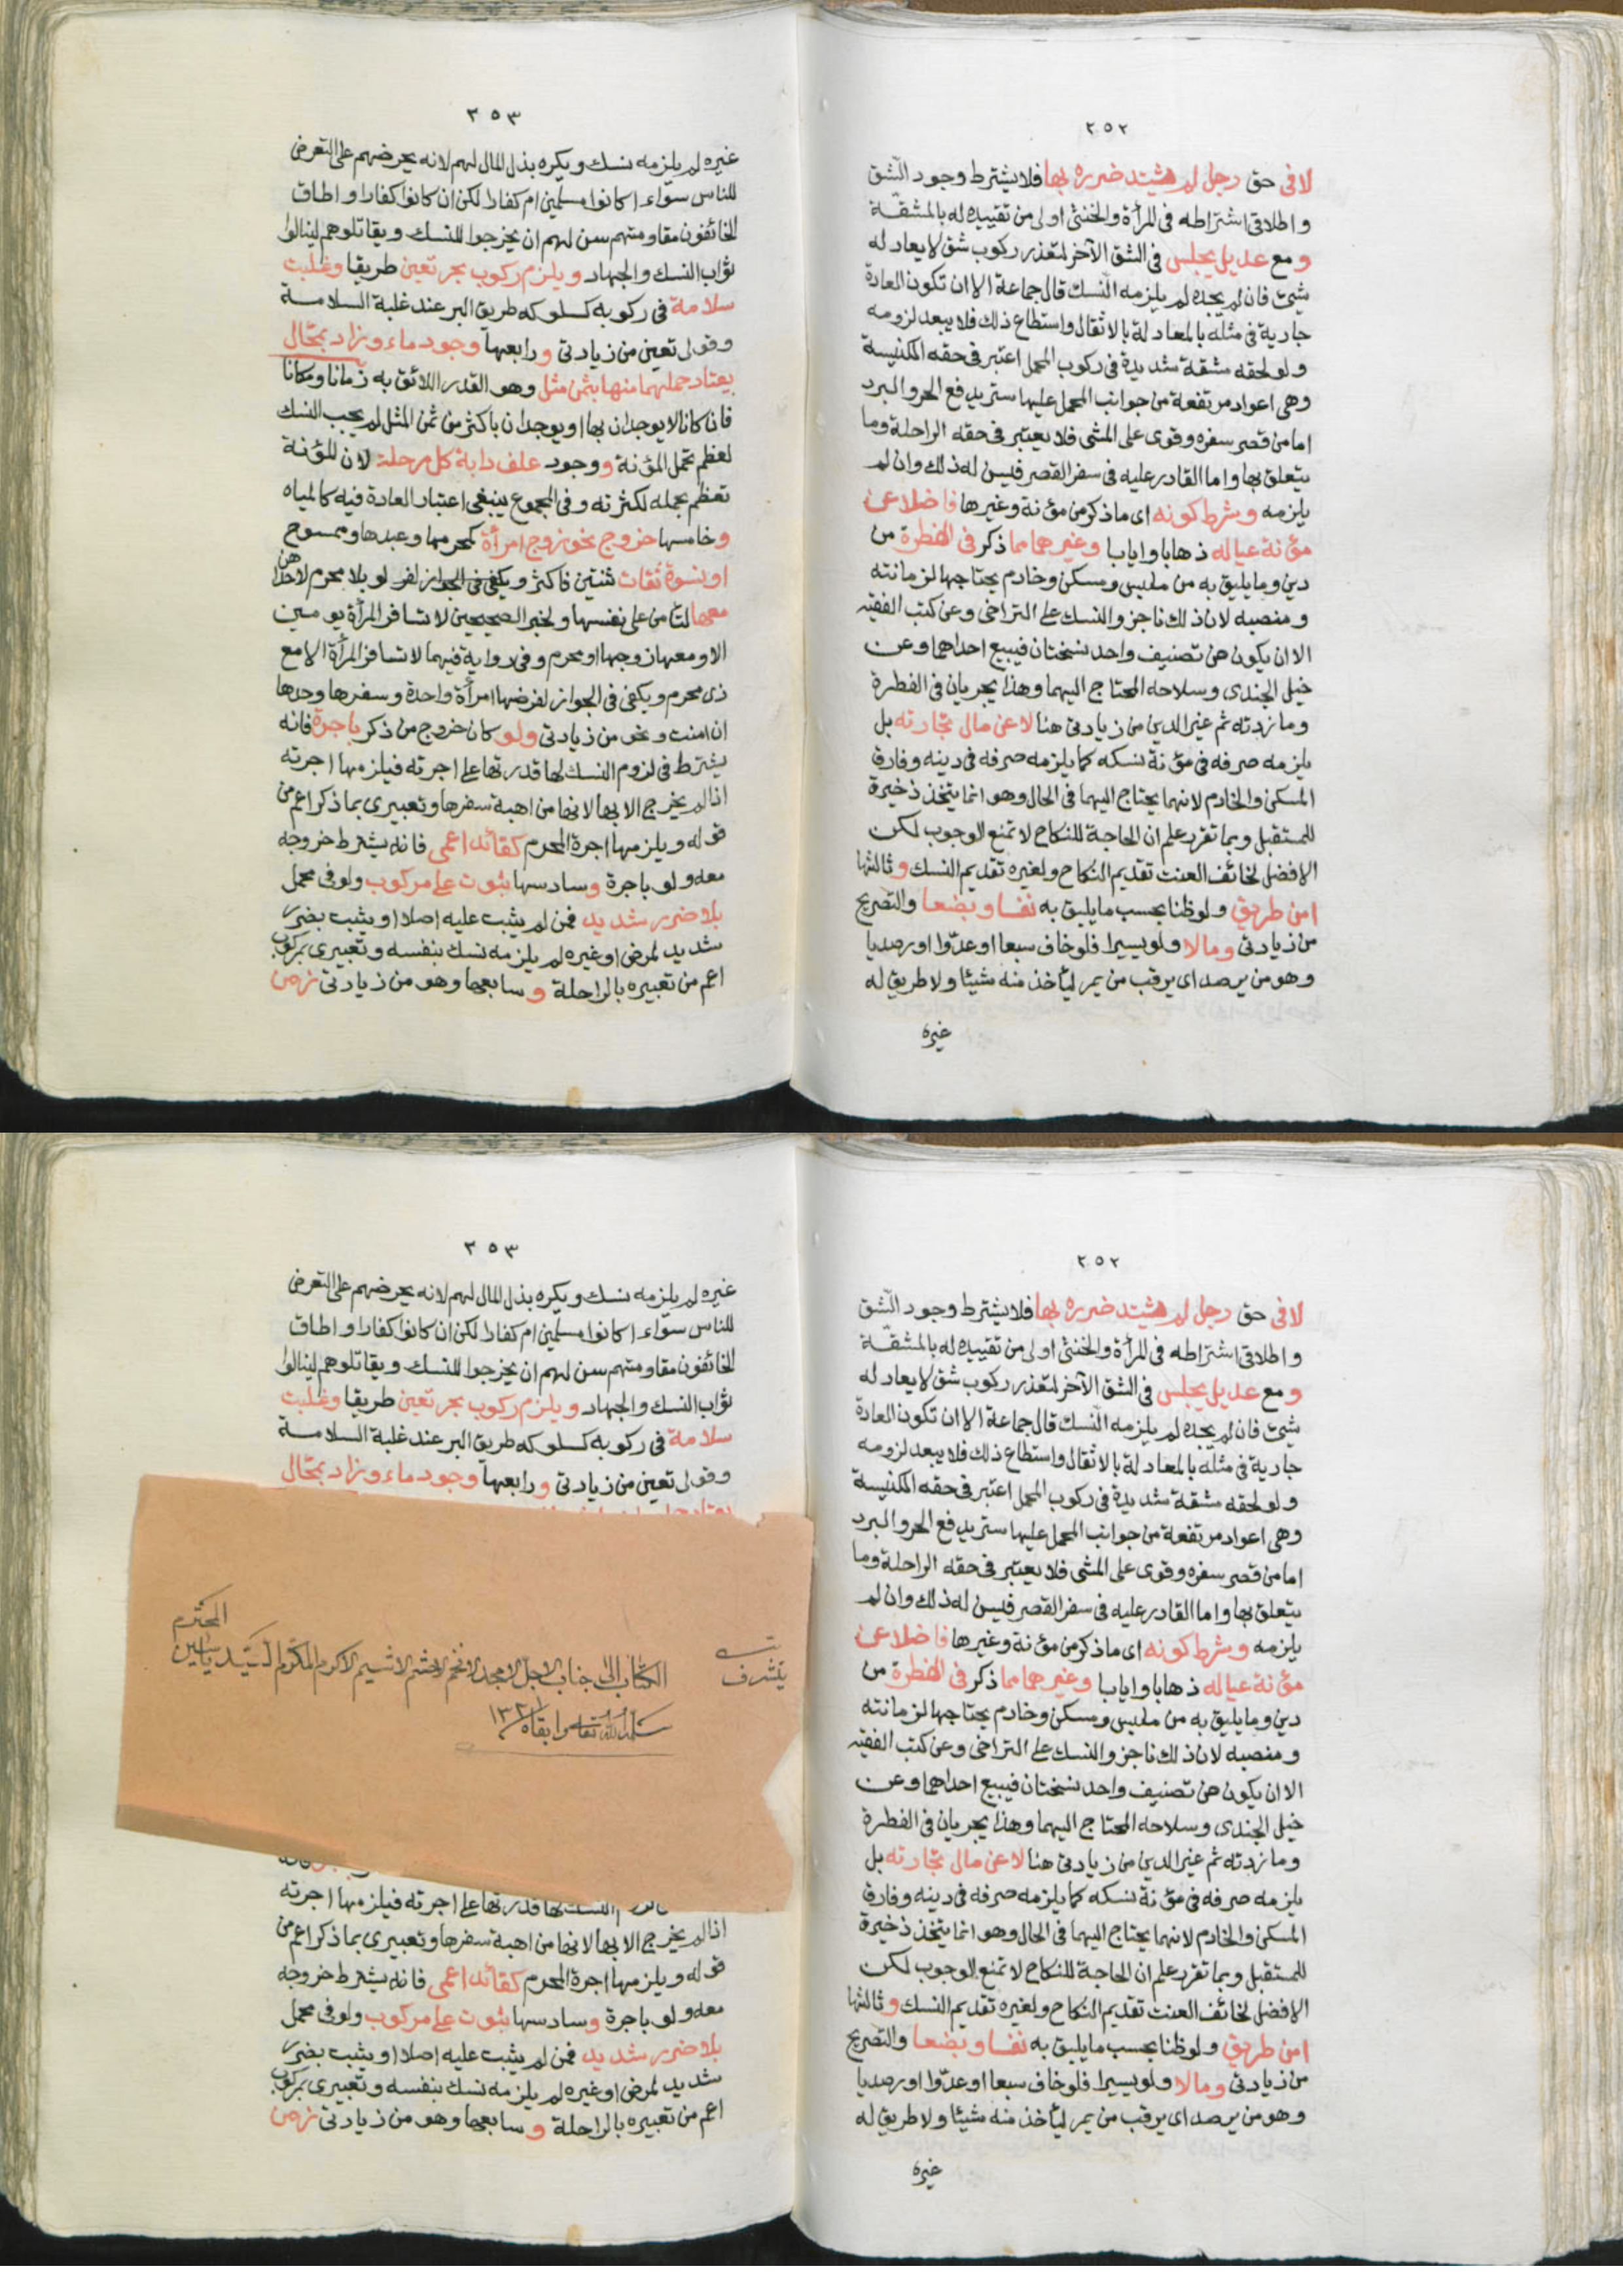 ٢٥٢
لا فى حق رجل لم يشتد ضرره بها فلا يشترط وجود الشق
و اطلاقى اشتراطه فى المرأة والخنثى اولى من تقييده له بالمشقة
و مع عديل يجلس فى الشق الآخر لتعذر ركوب شق لا يعادله
شئ فان لم يجده لم يلزمه النسك قال جماعة الا ان تكون العادة
جارية فى مثله بالمعادلة بالاثقال واستطاع ذلك فلا يبعد لزومه
و لو لحقه مشقة شديدة فى ركوب المحمل اعتبر فى حقه الكنيسة
وهى اعواد مرتفعة من جوانب المحمل عليها ستر يدفع الحر والبرد
اما من قصر سفره وقوى على المشى فلا يعتبر فى حقه الراحلة وما
يتعلق بها واما القادر عليه فى سفر القصر فيسن له ذلك وان لم
يلزمه وشرط كونه اى ما ذكر من مؤنة وغيرها فاضلا عن
مؤنة عياله ذهابا وايابا وغيرهما مما ذكر فى الفطرة من
دين وما يليق به من ملبس ومسكن وخادم يحتاجها لزمانته
و منصبه لان ذلك ناجز والنسك على التراخى وعن كتب الفقيه
الا ان يكون من تصنيف واحد نسختان فيبيع احداهما وعن
خيل الجندى وسلاحه المحتاج اليهما وهذا يجريان فى الفطرة
وما زدته ثم غير الدين من زيادتى هنا لا عن مال تجارته بل
يلزمه صرفه فى مؤنة نسكه كما يلزمه صرفه فى دينه وفارق
المسكن والخادم لانهما يحتاج اليهما فى الحال وهو انما يتخذ ذخيرة
للمستقبل وبما تقرر علم ان الحاجة للنكاح لا تمنع الوجوب لكن
الافضل لخائف العنت تقديم النكاح ولغيره تقديم النسك و ثالثها
امن طريق ولو ظنا بحسب ما يليق به نفسا وبضعا والتصريح
من زيادتى ومالا ولو يسيرا فلو خاف سبعا او عدوا او رصديا
وهو من يرصد اى يرقب من يمر ليأخذ منه شيئا ولا طريق له
غيره
٣٥٣
غيره لم يلزمه نسك ويكره بذل المال لهم لانه يحرضهم على التعرض
للناس سواء اكانوا مسلمين ام كفارا لكن ان كانوا كفارا واطاق
الخائفون مقاومتهم سن لهم ان يخرجوا للنسك ويقاتلوهم لينالوا
ثواب النسك والجهاد ويلزم ركوب بحر تعين طريقا وغلبت
سلامة فى ركوبه كسلوكه طريق البر عند غلبة السلامة
وقولى تعين من زيادتى و رابعها وجود ماء وزاد بمحال
يعتاد حملهما منها بثمن مثل وهو القدر اللائق به زمانا ومكانا
فان كانا لا يوجدان بها او يوجدان باكثر من ثمن المثل لم يجب النسك
لعظم تحمل المؤنة و وجود علف دابة كل مرحلة لان المؤنة
تعظم بحمله لكثرته وفى المجموع ينبغى اعتبار العادة فيه كالمياه
و خامسها خروج نحو زوج امرأة كمحرمها وعبدها وممسوح
او نسوة ثقات ثنتين فاكثر ويكفى فى الجواز لفرو لو بلا محرم لاحداهن
معها لتأمن على نفسها ولخبر الصحيحين لا تسافر المرأة يومين
الا ومعها زوجها او محرم وفى رواية فيهما لا تسافر المرأة الا مع
ذى محرم ويكفى فى الجواز لفرضها امرأة واحدة وسفرها وحدها
ان امنت ونحو من زيادتى ولو كان خروج من ذكر باجرة فانه
يشترط فى لزوم النسك لها قدرتها على اجرته فيلزمها اجرته
اذا لم يخرج الا بها لانها من اهبة سفرها وتعبيرى بما ذكر اعم من
قوله ويلزمها اجرة المحرم كقائد اعمى فانه يشترط خروجه
معه ولو باجرة وسادسها ثبوت على مركوب ولو فى محمل
بلا ضرر شديد فمن لم يثبت عليه اصلا او يثبت بضرر
شديد لمرض او غيره لم يلزمه نسك بنفسه وتعبيرى بمركوب
اعم من تعبيره بالراحلة و سابعها وهو من زيادتى زمن
٢٥٢
لا فى حق رجل لم يشتد ضرره بها فلا يشترط وجود الشق
و اطلاقى اشتراطه فى المرأة والخنثى اولى من تقييده له بالمشقة
و مع عديل يجلس فى الشق الآخر لتعذر ركوب شق لا يعادله
شئ فان لم يجده لم يلزمه النسك قال جماعة الا ان تكون العادة
جارية فى مثله بالمعادلة بالاثقال واستطاع ذلك فلا يبعد لزومه
و لو لحقه مشقة شديدة فى ركوب المحمل اعتبر فى حقه الكنيسة
وهى اعواد مرتفعة من جوانب المحمل عليها ستر يدفع الحر والبرد
اما من قصر سفره وقوى على المشى فلا يعتبر فى حقه الراحلة وما
يتعلق بها واما القادر عليه فى سفر القصر فيسن له ذلك وان لم
يلزمه وشرط كونه اى ما ذكر من مؤنة وغيرها فاضلا عن
مؤنة عياله ذهابا وايابا وغيرهما مما ذكر فى الفطرة من
دين وما يليق به من ملبس ومسكن وخادم يحتاجها لزمانته
و منصبه لان ذلك ناجز والنسك على التراخى وعن كتب الفقيه
الا ان يكون من تصنيف واحد نسختان فيبيع احداهما وعن
خيل الجندى وسلاحه المحتاج اليهما وهذا يجريان فى الفطرة
وما زدته ثم غير الدين من زيادتى هنا لا عن مال تجارته بل
يلزمه صرفه فى مؤنة نسكه كما يلزمه صرفه فى دينه وفارق
المسكن والخادم لانهما يحتاج اليهما فى الحال وهو انما يتخذ ذخيرة
للمستقبل وبما تقرر علم ان الحاجة للنكاح لا تمنع الوجوب لكن
الافضل لخائف العنت تقديم النكاح ولغيره تقديم النسك و ثالثها
امن طريق ولو ظنا بحسب ما يليق به نفسا وبضعا والتصريح
من زيادتى ومالا ولو يسيرا فلو خاف سبعا او عدوا او رصديا
وهو من يرصد اى يرقب من يمر ليأخذ منه شيئا ولا طريق له
غيره
٣٥٣
غيره لم يلزمه نسك ويكره بذل المال لهم لانه يحرضهم على التعرض
للناس سواء اكانوا مسلمين ام كفارا لكن ان كانوا كفارا واطاق
الخائفون مقاومتهم سن لهم ان يخرجوا للنسك ويقاتلوهم لينالوا
ثواب النسك والجهاد ويلزم ركوب بحر تعين طريقا وغلبت
سلامة فى ركوبه كسلوكه طريق البر عند غلبة السلامة
وقولى تعين من زيادتى و رابعها وجود ماء وزاد بمحال
يتشرف الكتاب الى جناب الاجل الامجد الافخم الاحشم الاشيم الاكرم المكرم السيد ياسين المحترم
سلمه الله تعالى وابقاه
النسك لها قدرتها على اجرته فيلزمها اجرته
اذا لم يخرج الا بها لانها من اهبة سفرها وتعبيرى بما ذكر اعم من
قوله ويلزمها اجرة المحرم كقائد اعمى فانه يشترط خروجه
معه ولو باجرة وسادسها ثبوت على مركوب ولو فى محمل
بلا ضرر شديد فمن لم يثبت عليه اصلا او يثبت بضرر
شديد لمرض او غيره لم يلزمه نسك بنفسه وتعبيرى بمركوب
اعم من تعبيره بالراحلة و سابعها وهو من زيادتى زمن